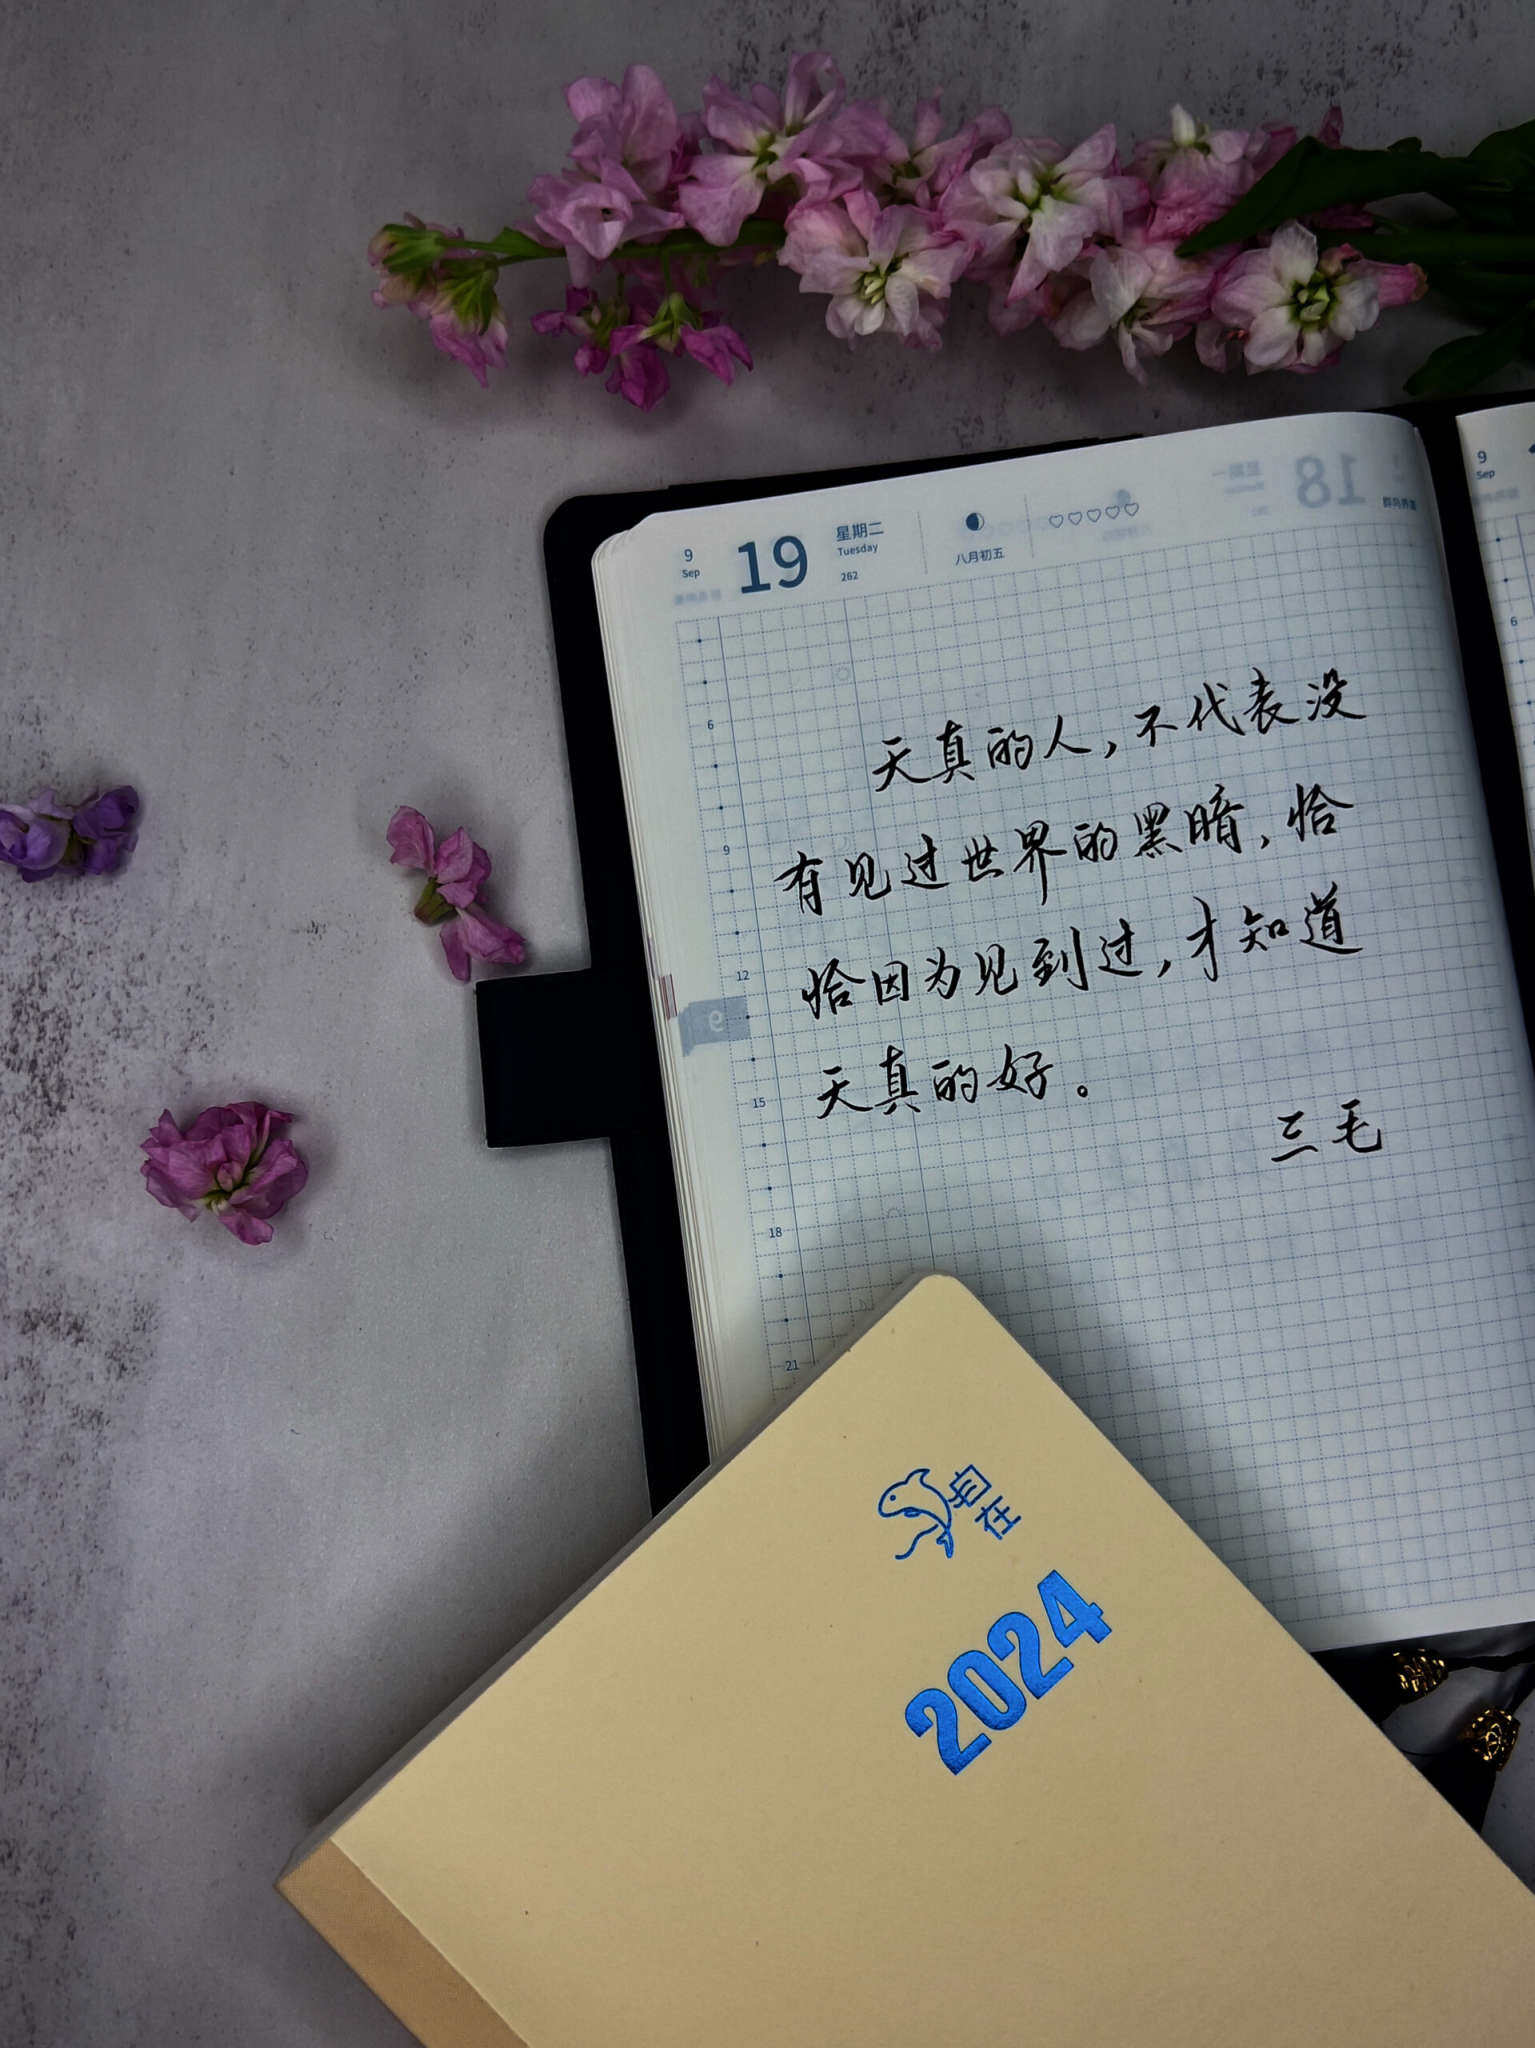 9
Sep
19
星期二
Tuesday
262
八月初五
18
9
Sep
6
天真的人，不代表没
有见过世界的黑暗，恰
恰因为见到过，才知道
天真的好。
三毛
6
9
12
9
15
18
21
自在
2024